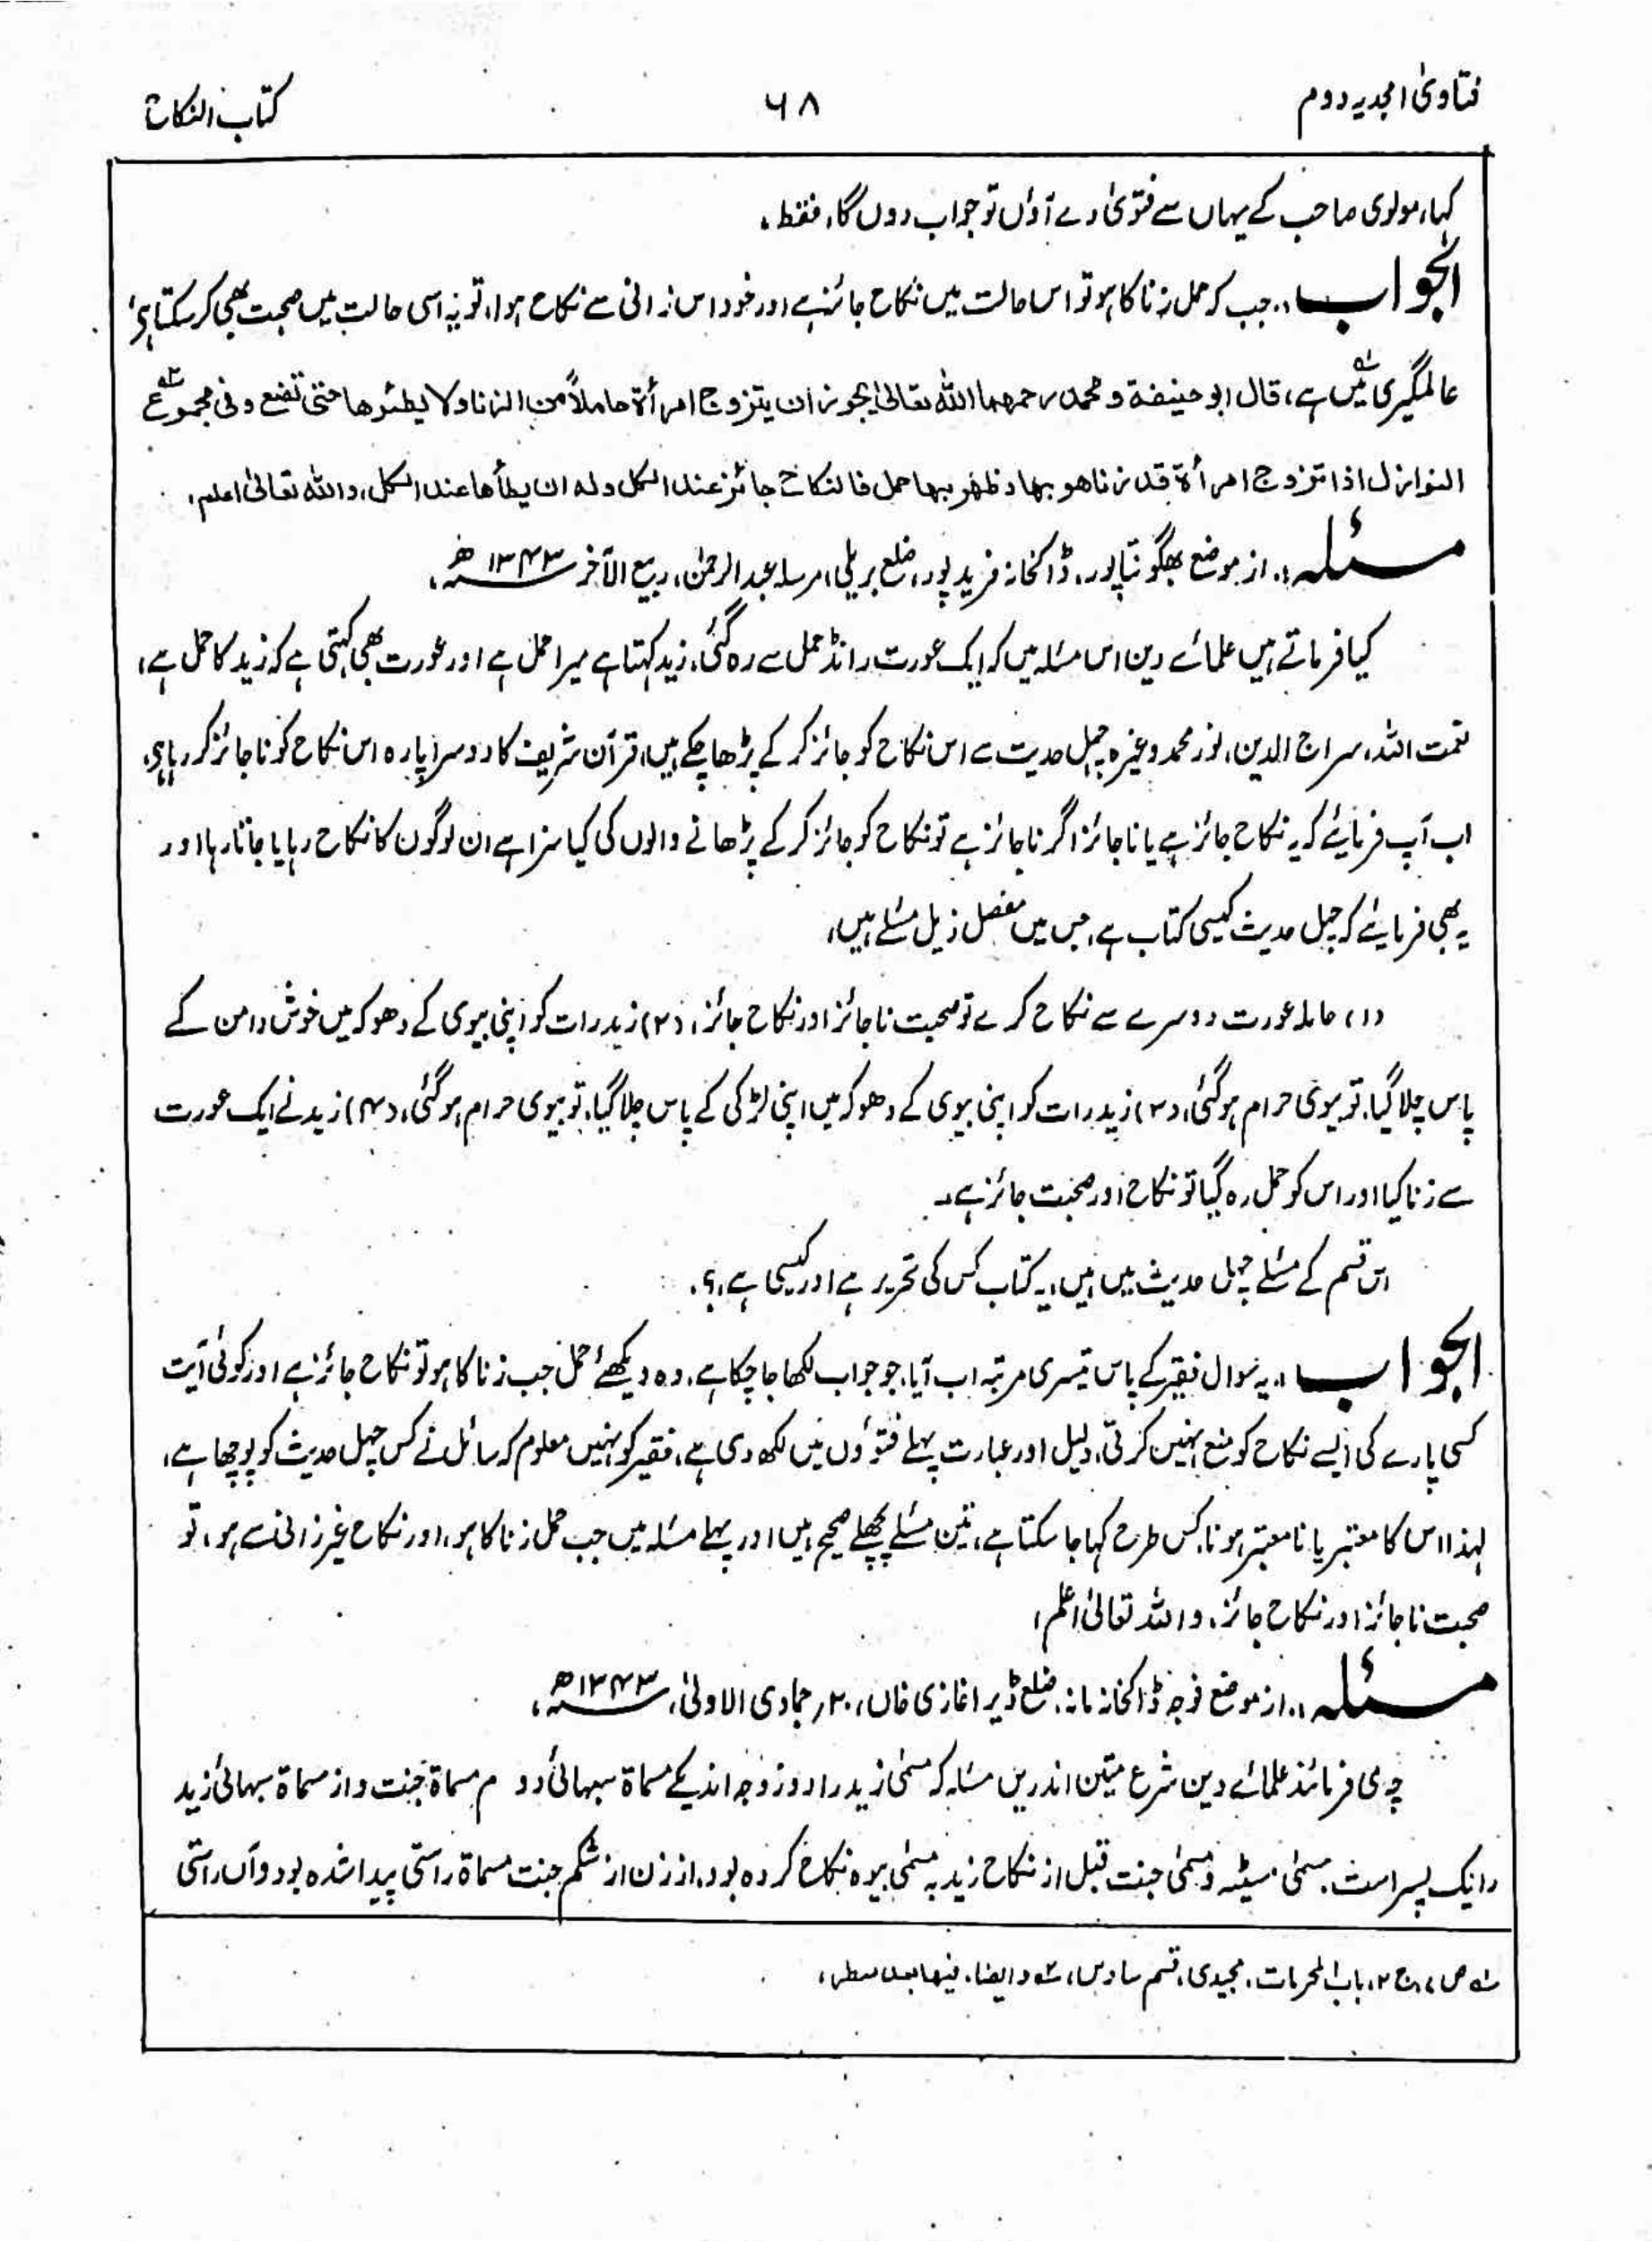 فتاویٰ امجدیہ دوم
۶۸
کتاب النکاح
کہا، مولوی صاحب کے یہاں سے فتویٰ دے آؤں تو جواب دوں گا، فقط۔
الجواب:۔ جب کہ حمل زنا کا ہو تو اس حالت میں نکاح جائز ہے اور خود اس زانی سے نکاح ہوا، تو یہ اسی حالت میں صحبت بھی کر سکتا ہے،
عالمگیری میں ہے، قال ابو حنیفة و محمد رحمهما الله تعالیٰ یجوز ان یتزوج امرأة حاملاً من الزنا ولا یطئوها حتی تضع وفی مجموع
النوازل اذا تزوج امرأة قد زنا هو بها وظهر بها حمل فالنکاح جائز عند الکل وله ان یطأها عند الکل، والله تعالیٰ اعلم،
مسئلہ:۔ از موضع بھگونتاپور، ڈاکخانہ فرید پور، ضلع بریلی، مرسلہ عبدالرحمٰن، ربیع الآخر ۱۳۴۳ھ،
کیا فرماتے ہیں علمائے دین اس مسئلہ میں کہ ایک عورت رانڈ حمل سے رہ گئی، زید کہتا ہے میرا حمل ہے اور عورت بھی کہتی ہے کہ زید کا حمل ہے،
نعمت اللہ، سراج الدین، نور محمد وغیرہ چہل حدیث سے اس نکاح کو جائز کر کے پڑھا چکے ہیں، قرآن شریف کا دوسرا پارہ اس نکاح کو ناجائز کر رہا ہے،
اب آپ فرمائیے کہ یہ نکاح جائز ہے یا ناجائز اگر ناجائز ہے تو نکاح کو جائز کر کے پڑھانے والوں کی کیا سزا ہے ان لوگوں کا نکاح رہا یا جاتا رہا اور
یہ بھی فرمایئے کہ چہل حدیث کیسی کتاب ہے، جس میں مفصل ذیل مسئلے ہیں،
(۱) حاملہ عورت دوسرے سے نکاح کرے تو صحبت ناجائز اور نکاح جائز، (۲) زید رات کو اپنی بیوی کے دھوکہ میں خوش دامن کے
پاس چلا گیا، تو بیوی حرام ہو گئی، (۳) زید رات کو اپنی بیوی کے دھوکہ میں اپنی لڑکی کے پاس چلا گیا، تو بیوی حرام ہو گئی، (۴) زید نے ایک عورت
سے زنا کیا اور اس کو حمل رہ گیا تو نکاح اور صحبت جائز ہے۔
اس قسم کے مسئلے چہل حدیث میں ہیں، یہ کتاب کس کی تحریر ہے اور کیسی ہے،؟،
الجواب:۔ یہ سوال فقیر کے پاس تیسری مرتبہ اب آیا، جو جواب لکھا جا چکا ہے، وہ دیکھئے حمل جب زنا کا ہو تو نکاح جائز ہے اور کوئی آیت
کسی پارے کی ایسے نکاح کو منع نہیں کرتی، دلیل اور عبارت پہلے فتوؤں میں لکھ دی ہے، فقیر کو نہیں معلوم کہ سائل نے کس چہل حدیث کو پوچھا ہے،
لہذا اس کا معتبر یا نامعتبر ہونا کس طرح کہا جا سکتا ہے، تین مسئلے پچھلے صحیح ہیں اور پہلے مسئلہ میں جب حمل زنا کا ہو، اور نکاح غیر زانی سے ہو، تو
صحبت ناجائز اور نکاح جائز، واللہ تعالیٰ اعلم،
مسئلہ:۔ از موضع ڈاکخانہ مانہ، ضلع ڈیرا غازی خاں، ۲۰؍ جمادی الاولیٰ، ۱۳۴۳ھ،
چہ می فرمائند علمائے دین شرع متین اندریں مسئلہ کہ مسمیٰ زید را دو زوجہ اند یکے مسماة سبہائی دوم مسماة جنت و از مسماة سبہائی زید
را یک پسر است، مسمیٰ میٹہ و مسمیٰ جنت قبل از نکاح زید بہ مسمیٰ بیوہ نکاح کردہ بود، از زن از شکم جنت مسماة راستی پیدا شدہ بود و آں راستی
۱؎ ص ۷، ج ۲، باب المحرمات، مجیدی، قسم سادس، ۲؎ و ایضا، فیها بعد سطر،